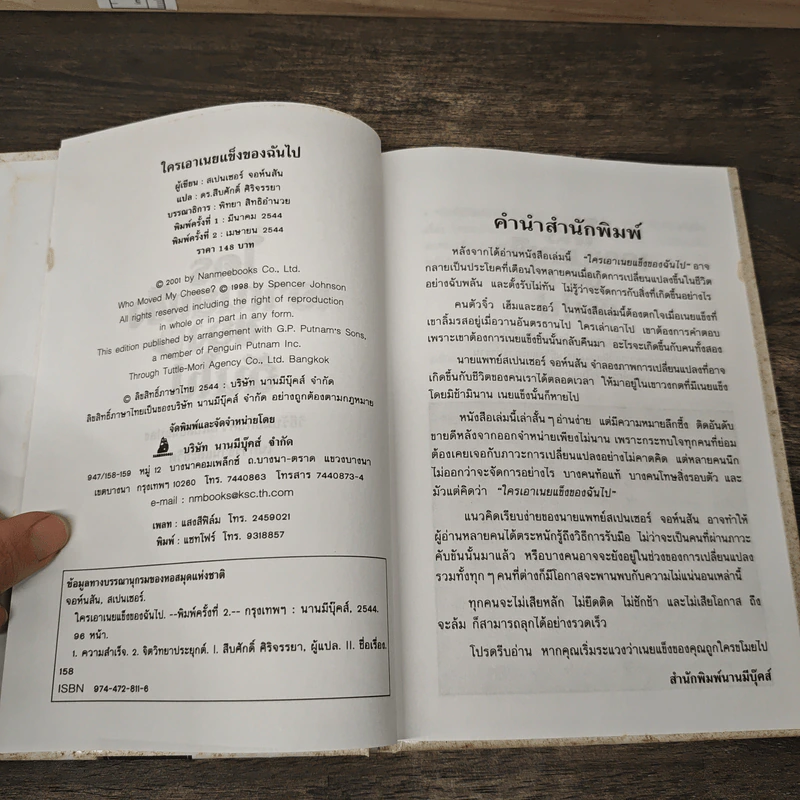 ใครเอาเนยแข็งของฉันไป
ผู้เขียน : สเปนเซอร์ จอห์นสัน
แปล : ดร.สืบศักดิ์ ศิริจรรยา
บรรณาธิการ : พิทยา สิทธิอำนวย
พิมพ์ครั้งที่ 1 : มีนาคม 2544
พิมพ์ครั้งที่ 2 : เมษายน 2544
ราคา 148 บาท
© 2001 by Nanmeebooks Co., Ltd.
Who Moved My Cheese? © 1998 by Spencer Johnson
All rights reserved including the right of reproduction
in whole or in part in any form.
This edition published by arrangement with G.P. Putnam's Sons,
a member of Penguin Putnam Inc.
Through Tuttle-Mori Agency Co., Ltd. Bangkok
© ลิขสิทธิ์ภาษาไทย 2544 : บริษัท นานมีบุ๊คส์ จำกัด
ลิขสิทธิ์ภาษาไทยเป็นของบริษัท นานมีบุ๊คส์ จำกัด อย่างถูกต้องตามกฎหมาย
จัดพิมพ์และจัดจำหน่ายโดย
บริษัท นานมีบุ๊คส์ จำกัด
947/158-159 หมู่ 12 บางนาคอมเพล็กซ์ ถ.บางนา-ตราด แขวงบางนา
เขตบางนา กรุงเทพฯ 10260 โทร. 7440863 โทรสาร 7440873-4
e-mail : nmbooks@ksc.th.com
เพลท : แสงสีฟิล์ม โทร. 2459021
พิมพ์ : แซทโฟร์ โทร. 9318857
ข้อมูลทางบรรณานุกรมของหอสมุดแห่งชาติ
จอห์นสัน, สเปนเซอร์.
ใครเอาเนยแข็งของฉันไป. --พิมพ์ครั้งที่ 2.-- กรุงเทพฯ : นานมีบุ๊คส์, 2544.
96 หน้า.
1. ความสำเร็จ. 2. จิตวิทยาประยุกต์. I. สืบศักดิ์ ศิริจรรยา, ผู้แปล. II. ชื่อเรื่อง.
158
ISBN 974-472-811-6
คำนำสำนักพิมพ์
หลังจากได้อ่านหนังสือเล่มนี้ "ใครเอาเนยแข็งของฉันไป" อาจ
กลายเป็นประโยคที่เตือนใจหลายคนเมื่อเกิดการเปลี่ยนแปลงขึ้นในชีวิต
อย่างฉับพลัน และตั้งรับไม่ทัน ไม่รู้ว่าจะจัดการกับสิ่งที่เกิดขึ้นอย่างไร
คนตัวจิ๋ว เฮ็มและฮอว์ ในหนังสือเล่มนี้ต้องตกใจเมื่อเนยแข็งที่
เขาลิ้มรสอยู่เมื่อวานอันตรธานไป ใครเล่าเอาไป เขาต้องการคำตอบ
เพราะเขาต้องการเนยแข็งชิ้นนั้นกลับคืนมา อะไรจะเกิดขึ้นกับคนทั้งสอง
นายแพทย์สเปนเซอร์ จอห์นสัน จำลองภาพการเปลี่ยนแปลงที่อาจ
เกิดขึ้นกับชีวิตของคนเราได้ตลอดเวลา ให้มาอยู่ในเขาวงกตที่มีเนยแข็ง
โดยมิช้ามินาน เนยแข็งนั้นก็หายไป
หนังสือเล่มนี้เล่าสั้นๆ อ่านง่าย แต่มีความหมายลึกซึ้ง ติดอันดับ
ขายดีหลังจากออกจำหน่ายเพียงไม่นาน เพราะกระทบใจทุกคนที่ย่อม
ต้องเคยเจอกับภาวะการเปลี่ยนแปลงอย่างไม่คาดคิด แต่หลายคนนึก
ไม่ออกว่าจะจัดการอย่างไร บางคนท้อแท้ บางคนโทษสิ่งรอบตัว และ
มัวแต่คิดว่า "ใครเอาเนยแข็งของฉันไป"
แนวคิดเรียบง่ายของนายแพทย์สเปนเซอร์ จอห์นสัน อาจทำให้
ผู้อ่านหลายคนได้ตระหนักรู้ถึงวิธีการรับมือ ไม่ว่าจะเป็นคนที่ผ่านภาวะ
คับขันนั้นมาแล้ว หรือบางคนอาจจะยังอยู่ในช่วงของการเปลี่ยนแปลง
รวมทั้งทุกๆ คนที่ต่างก็มีโอกาสจะพานพบกับความไม่แน่นอนเหล่านี้
ทุกคนจะไม่เสียหลัก ไม่ยึดติด ไม่ชักช้า และไม่เสียโอกาส ถึง
จะล้ม ก็สามารถลุกได้อย่างรวดเร็ว
โปรดรีบอ่าน หากคุณเริ่มระแวงว่าเนยแข็งของคุณถูกใครขโมยไป
สำนักพิมพ์นานมีบุ๊คส์